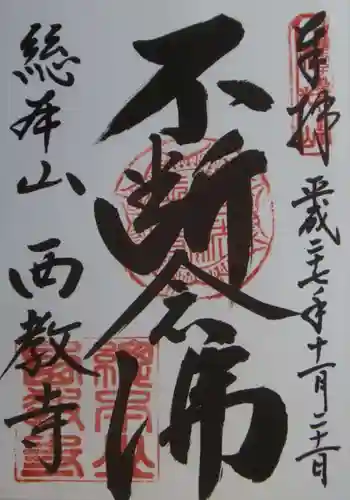 奉拝
平成二十七年十一月二十二日
不断念佛
総本山 西教寺